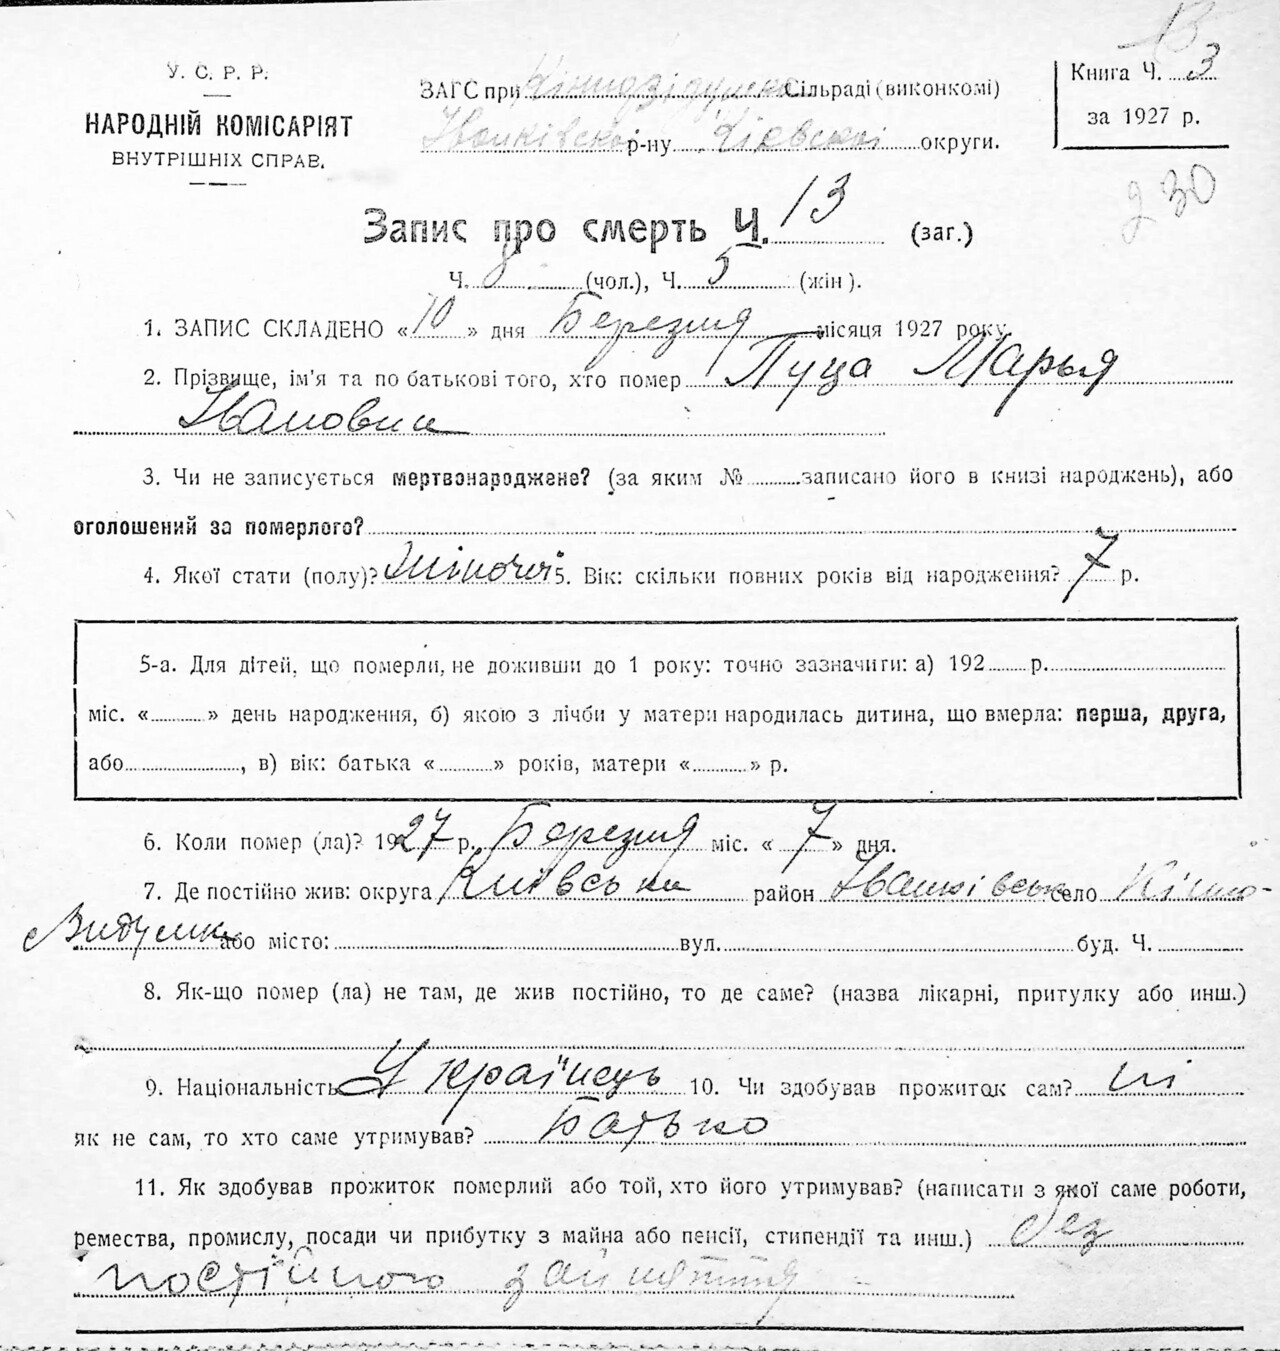 У. С. Р. Р.
НАРОДНІЙ КОМІСАРІЯТ
ВНУТРІШНІХ СПРАВ.
ЗАГС при Сільраді (виконкомі)
Іванківсько р-ну Київської округи.
Книга Ч. 3
за 1927 р.
230
Запис про смерть Ч. 13 (заг.)
Ч. 8 (чол.), Ч. 5 (жін).
1. ЗАПИС СКЛАДЕНО «10» дня Березня місяця 1927 року.
2. Прізвище, ім'я та по батькові того, хто помер Пуца Марья
Івановна
3. Чи не записується мертвонароджене? (за яким № записано його в книзі народжень), або
оголошений за померлого?
4. Якої стати (полу)? жіночої 5. Вік: скільки повних років від народження? 7 р.
5-а. Для дітей, що померли, не доживши до 1 року: точно зазначити: а) 192 р.
міс. « » день народження, б) якою з лічби у матери народилась дитина, що вмерла: перша, друга,
або , в) вік: батька « » років, матери « » р.
6. Коли помер (ла)? 1927 р. Березня міс. «7» дня.
7. Де постійно жив: округа Київська район Іванківськ село Кінно-
Видумка або місто: вул. буд. Ч.
8. Як-що помер (ла) не там, де жив постійно, то де саме? (назва лікарні, притулку або инш.)
9. Національність Українець 10. Чи здобував прожиток сам? ні
як не сам, то хто саме утримував? Батько
11. Як здобував прожиток померлий або той, хто його утримував? (написати з якої саме роботи,
ремества, промислу, посади чи прибутку з майна або пенсії, стипендії та инш.) без
постійного заняття